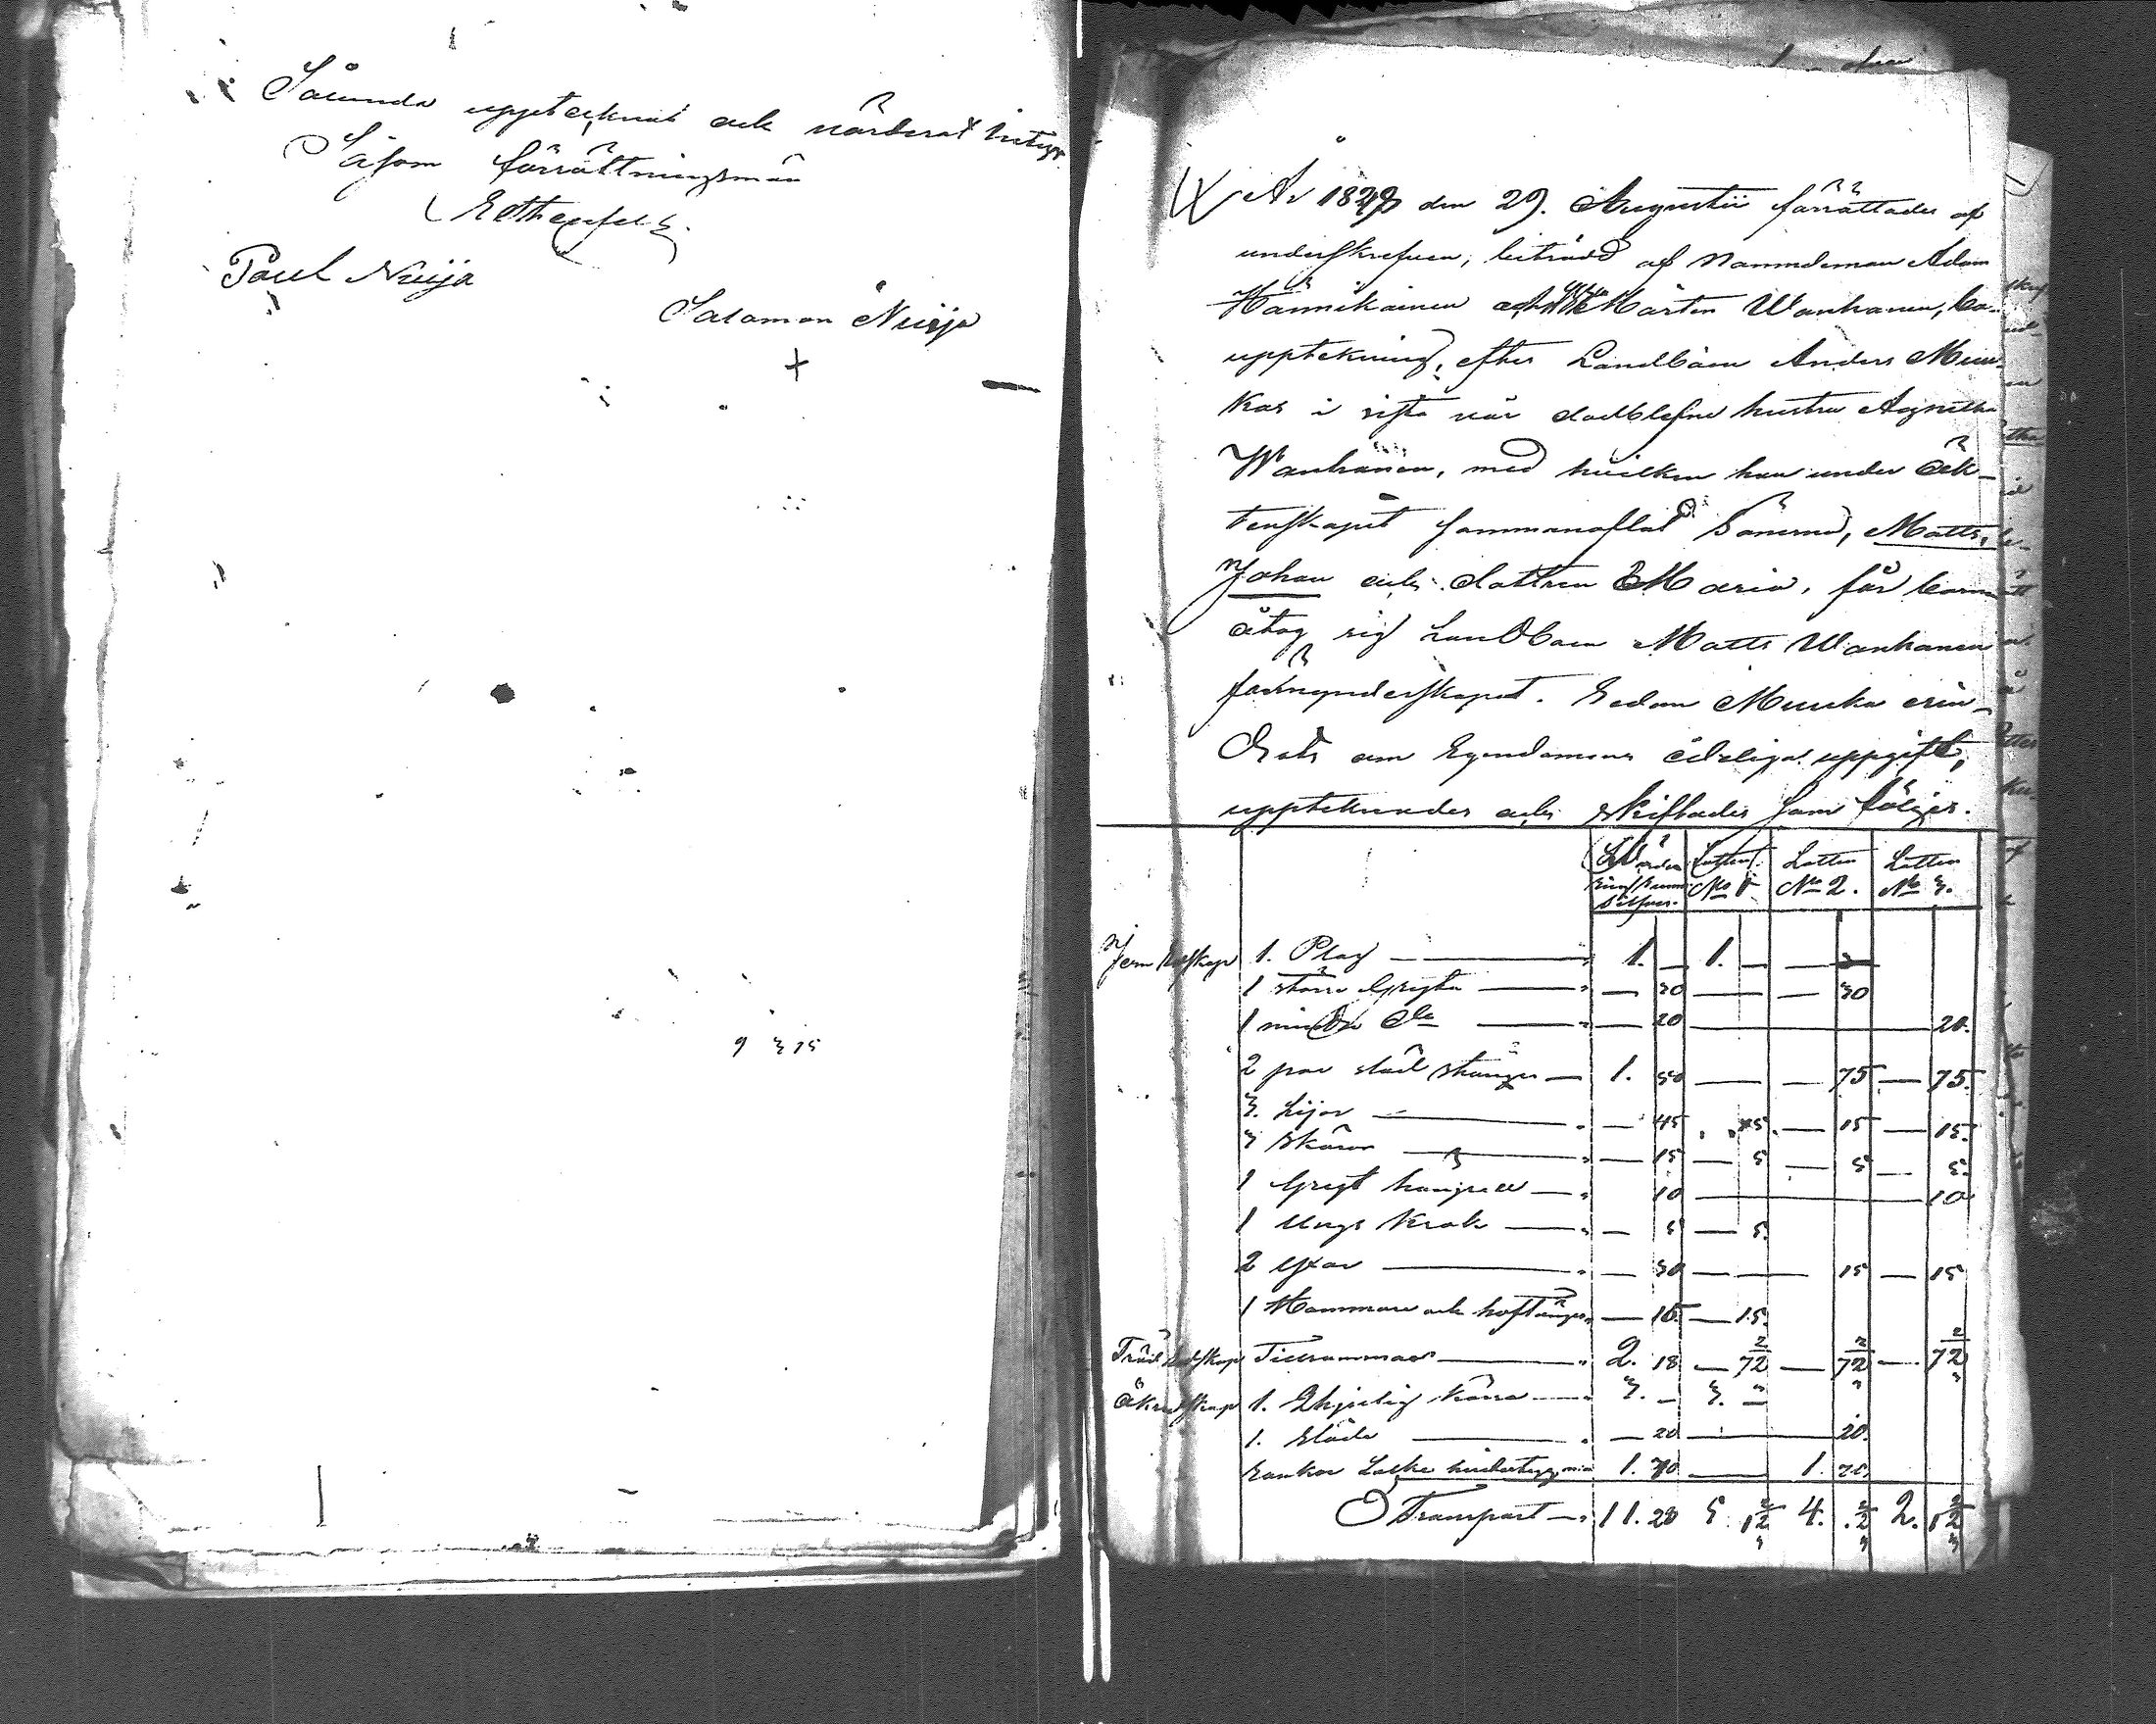 Sålunda upptecknat och värderat betyga
Såsom förrättningsmän
Paul Nuija
Salomon Nuija
+
9 3 15
År 1842 den 29. Augustii förrättades af
underskrefven, biträdd af Nämndeman Adam
Hännikäinen och Mårten Wanhanen, bo-
uppteckning, efter Landbon Anders Muu-
kas i sista vår dödblefne hustru Agnetha
Wanhanen, med hvilken han under äk-
tenskapet sammanaflat Sönerne, Matts,
Johan och dottren Maria, för barnen
åtog sig Landbon Matts Wanhanen
förmynderskapet. Sedan Muuka erin-
drats om Egendomens ärliga uppgift,
upptecknades och skiftades som följer.
Värden Lotten Lotten Lotten
Silfver. No 1 No 2. No 3.
Jern Redskap 1. Plog 1. — 1. —
1 större Gryta — 30 — 30
1 mindre do — 20 20.
2 par stänger 1. 50 — 75 — 75.
3. Lijor — 45 15. — 15 — 15.
3 Skäror — 15 — 5 — 5 — 5.
1 Gryt 10 10
1 Ungs krok — 5 — 5.
2 Yxor — 30 — 15 — 15
1 Hammare och hoftänger — 15 — 15.
Träd Redskap Tillsammans 2. 18 — 72 2/3 — 72 2/3 — 72 2/3
Åkredskap 1. 2hjulig Kärra 3. — 3. —
1. Släde — 20 20.
1. 70 1. 70
Transport 11. 28 5. 12 2/3 4. 2. 12 2/3